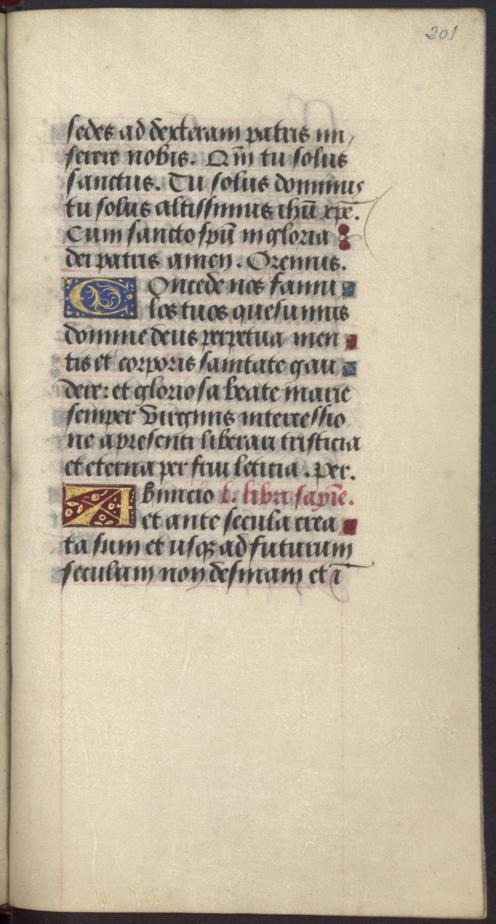 201
sedes ad dexteram patris mi
serere nobis. Qm̄ tu solus
sanctus. Tu solus dominus
tu solus altissimus ihū xp̄e.
Cum sancto spū in gloria
dei patris amen. Oremus.
Concede nos famu
los tuos quesumus
domine deus perpetua men
tis et corporis sanitate gau
dere: et gloriosa beate marie
semper virginis intercessio
ne a presenti liberari tristicia
et eterna perfrui leticia. Per.
Ab inicio l. libri sapiē.
et ante secula crea
ta sum et usqȝ ad futurum
seculum non desinam et ī